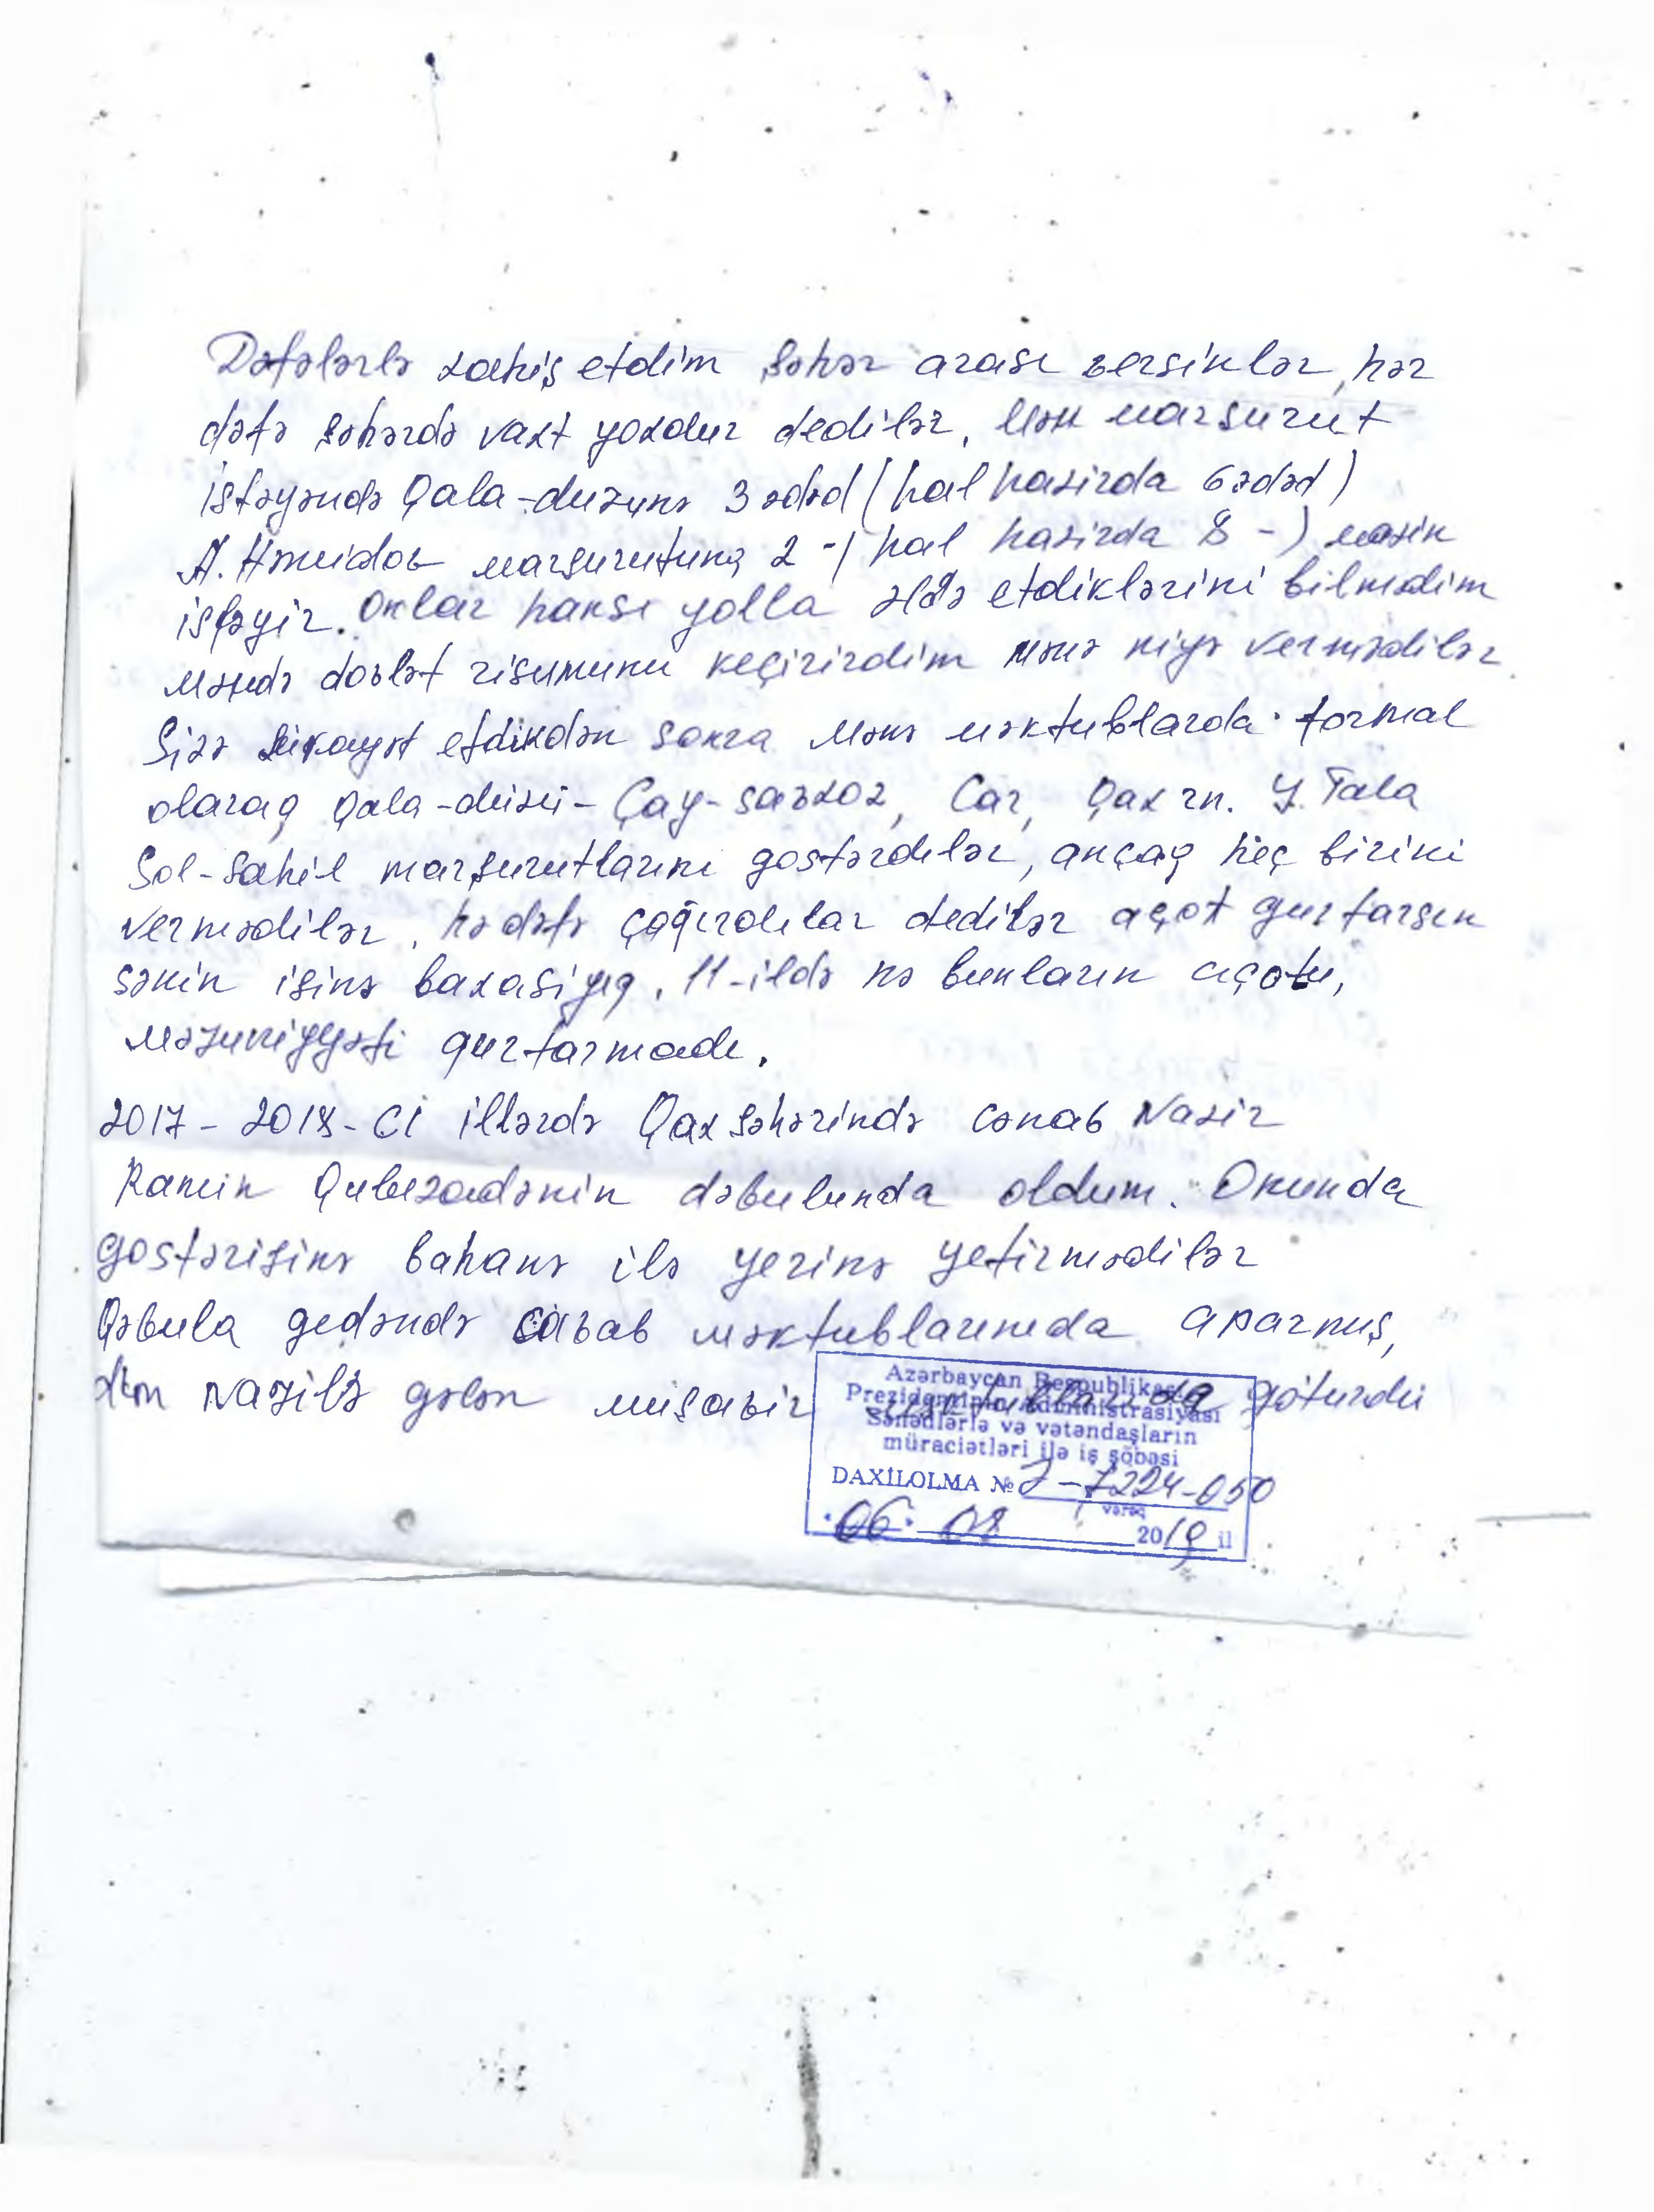 Dəfələrlə xahiş etdim şəhər arası versinlər, hər
dəfə şəhərdə vaxt yoxdur dedilər. Mən marşurut
istəyəndə Qala-duzunə 3 ədəd (hal hazirda 6 ədəd)
A. Həmidov marşurutuna 2 -( hal hazirda 8 -) maşin
işləyir. Onlar hansı yolla əldə etdiklərini bilmədim
Məndə dovlət risumunu keçirirdim mənə niyə vermədilər
Sizə şikayət etdikdən sonra Mənə məktublarda formal
olaraq Qala-düzü- Çay-savxoz, Car, Qax rn. Y. Tala
Sol-Sahil marşurutlarını gostərdılər, ançaq heç birini
vermədilər. hə dəfə çağırdılar dedilər açot qurtarsın
sənin işinə baxaşiyıq. 11-ildə nə bunların açotu,
məzuniyyəti qurtarmadı.
2017 - 2018-ci illərdə Qax şəhərində cənab Nazir
Ramin Quluzadənin dəbulunda oldum. Onunda
gostərişinə bahanə ilə yerinə yetirmədilər
Qəbula gedəndə cavab məktublarınıda aparmış,
dım Nazirlə gələn müşavir məktubları da götürdü
Azərbaycan Respublikası
Prezidentinin Administrasiyası
Sənədlərlə və vətəndaşların
müraciətləri ilə iş şöbəsi
DAXİLOLMA № 2-7224-050
vərəq
"06" 08 2019 il